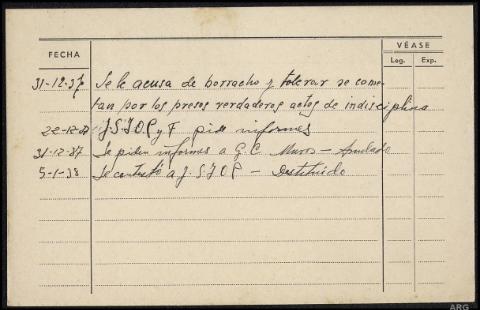 FECHA
VÉASE
Leg. Exp.
31-12-37 Se le acusa de borracho y tolerar se come-
tan por los presos verdaderos actos de indisciplina
22-12-37 J.S.I.O.P. y F pide informes
31-12-37 Se piden informes a G.C. Muros -
5-1-38 Se contestó a J.S.I.O.P - Destituido
ARG